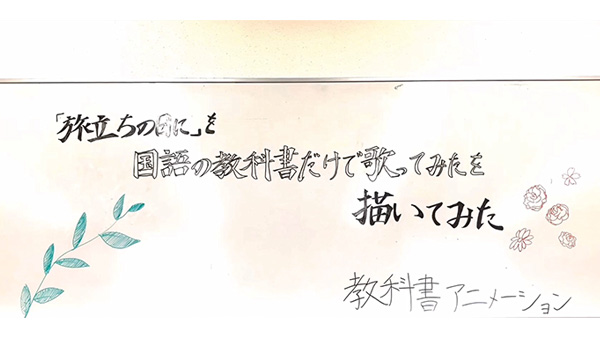 「旅立ちの日に」を
国語の教科書だけで歌ってみたを
描いてみた
教科書アニメーション